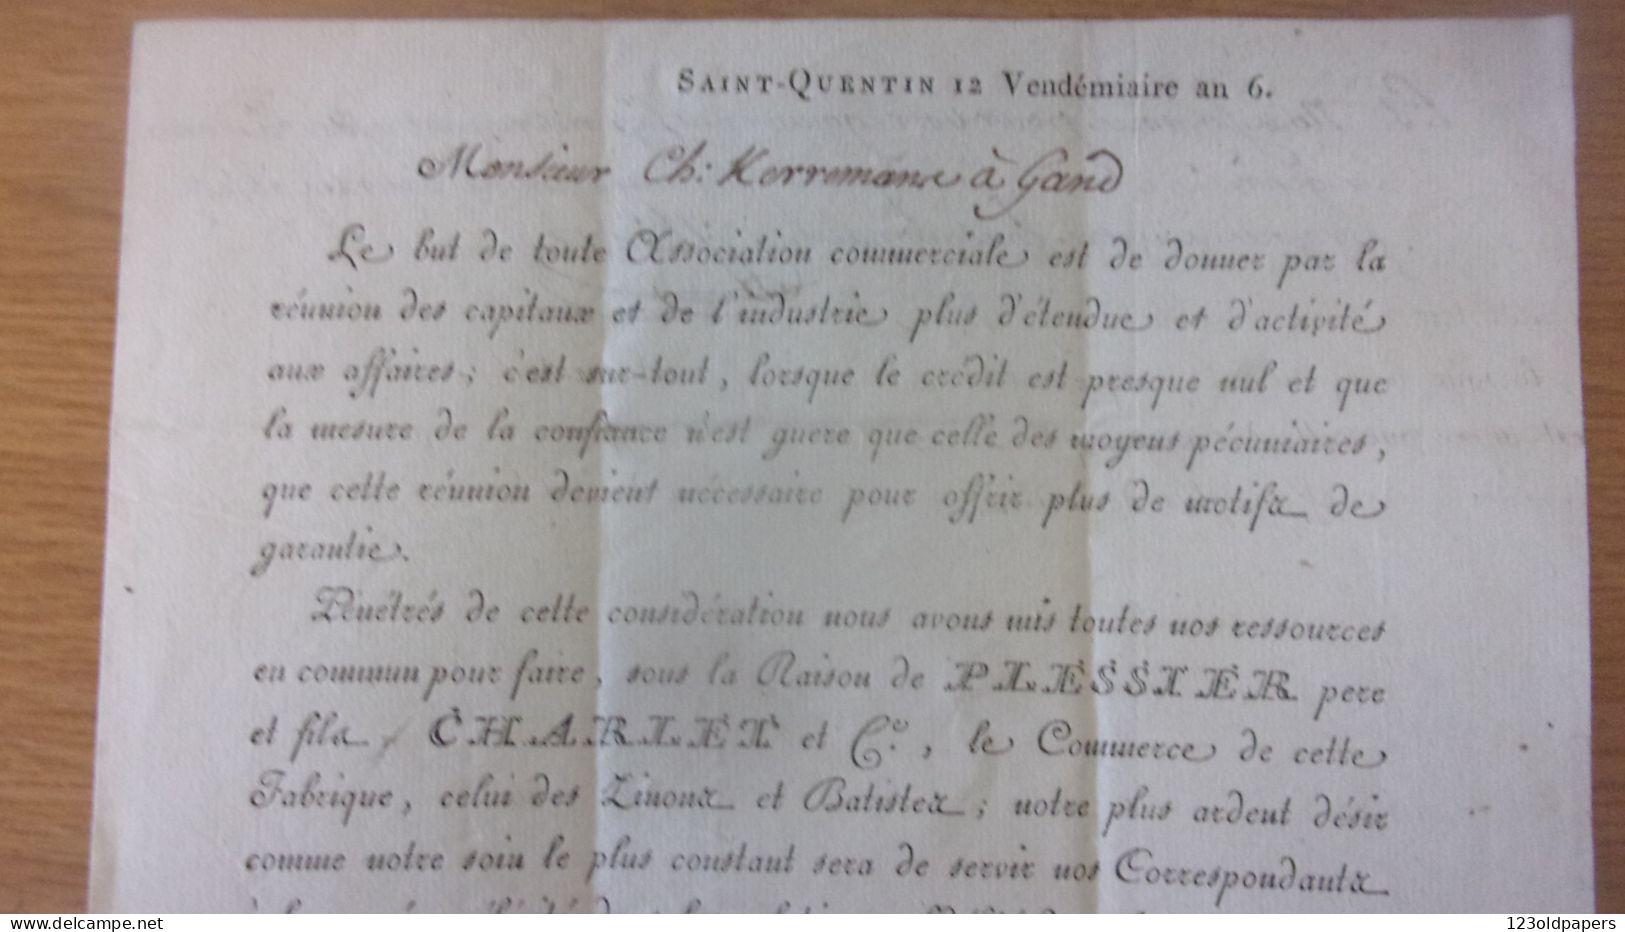 SAINT-QUENTIN 12 Vendémiaire an 6.
Monsieur Ch: Kerremans à Gand
Le but de toute Association commerciale est de donner par la
réunion des capitaux et de l'industrie plus d'étendue et d'activité
aux affaires; c'est sur-tout, lorsque le crédit est presque nul et que
la mesure de la confiance n'est guere que celle des moyens pécuniaires,
que cette réunion devient nécessaire pour offrir plus de motifs de
garantie.
Pénétrés de cette considération nous avons mis toutes nos ressources
en commun pour faire, sous la Raison de PLESSIER pere
et fils CHARLET et C.o, le Commerce de cette
Fabrique, celui des Linons et Batistes; notre plus ardent désir
comme notre soin le plus constant sera de servir nos Correspondants
delcampe.net
123oldpapers